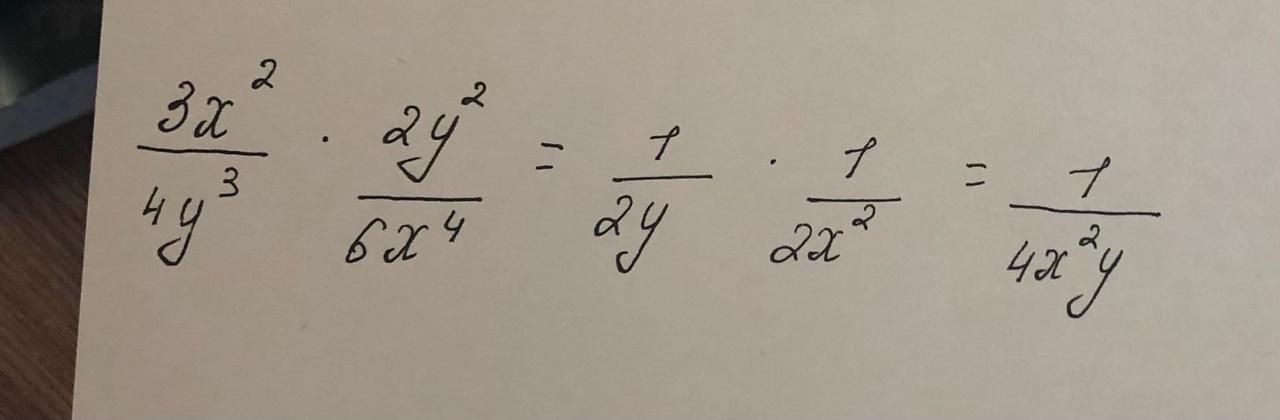 \frac{3x^2}{4y^3} \cdot \frac{2y^2}{6x^4} = \frac{1}{2y} \cdot \frac{1}{2x^2} = \frac{1}{4x^2y}